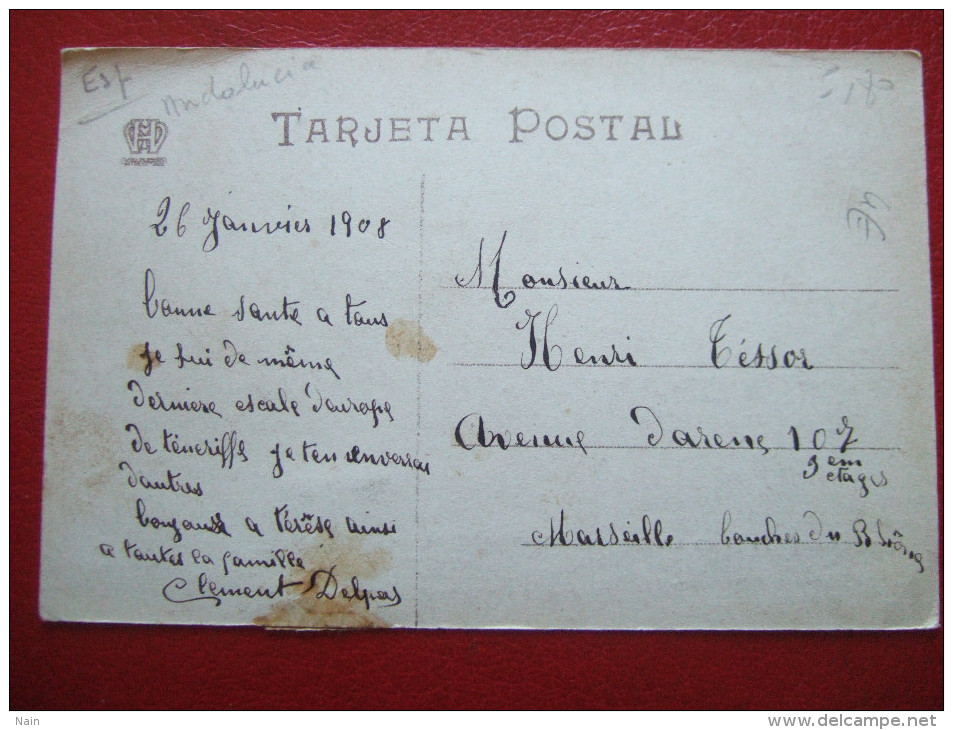 Esp
Andalucia
TARJETA POSTAL
26 Janvier 1908
bonne sante a tous
je sui de même
derniere escale d'europe
de téneriffe je ten enverrai
dautres
bonjours a térèse ainsi
a toutes la famille
Clement Delpas
Monsieur
Henri Téssor
Avenue darene 107
3 em
etages
Marseille bouches du Rhône
Nain
www.delcampe.net